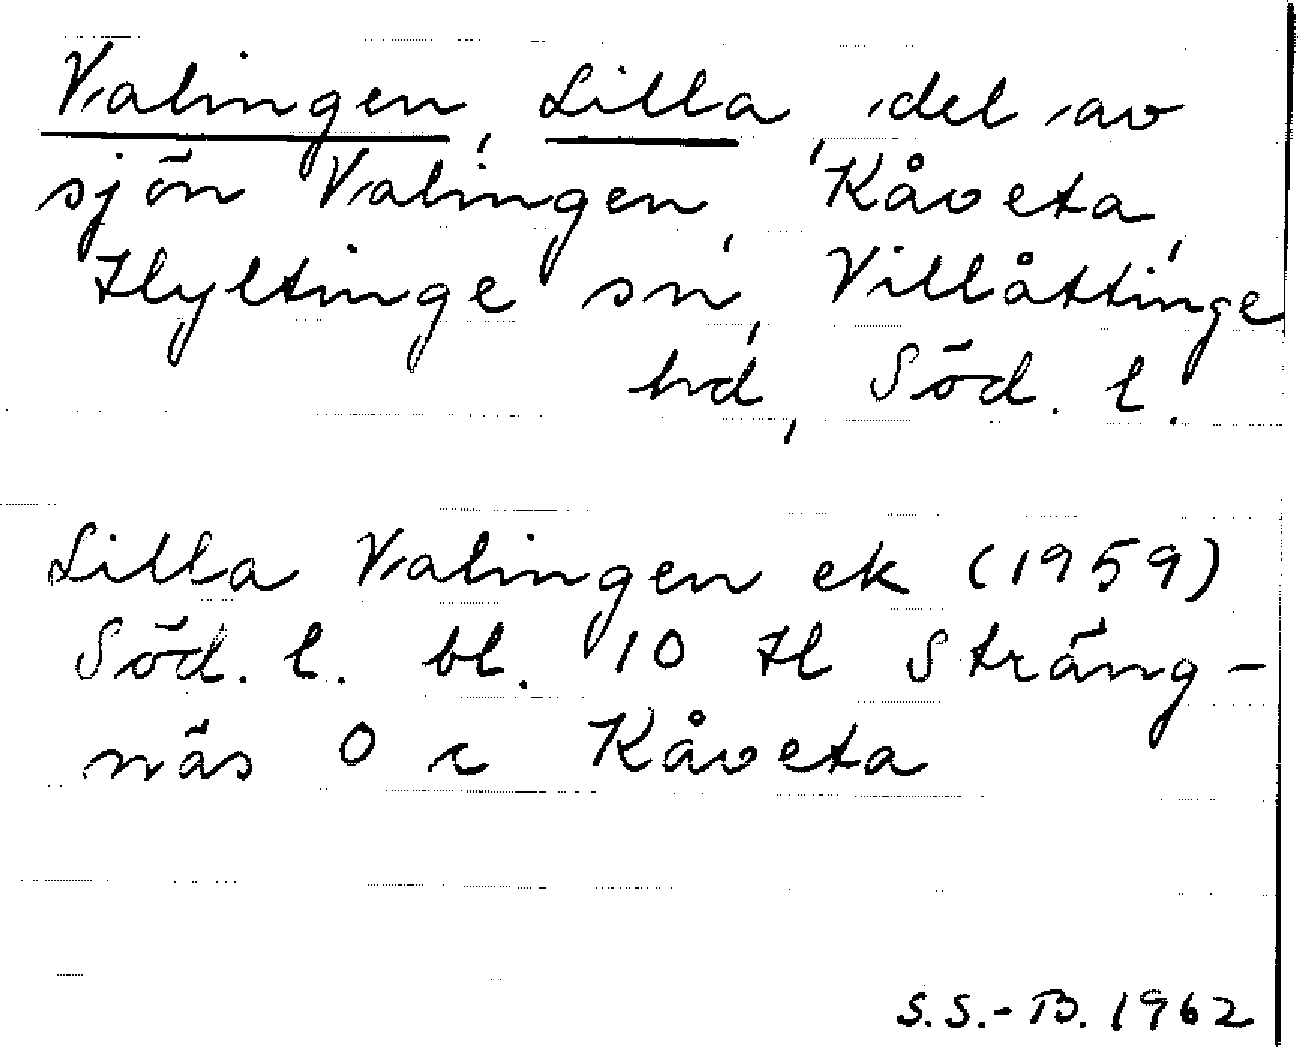 Valingen, Lilla, del av
sjön Valingen, Kåveta,
Hyltinge sn, Villåttinge
hd, Söd. l.
Lilla Valingen ek (1959)
Söd. l. bl. 10 H Sträng-
näs O c Kåveta
S.S.-B. 1962